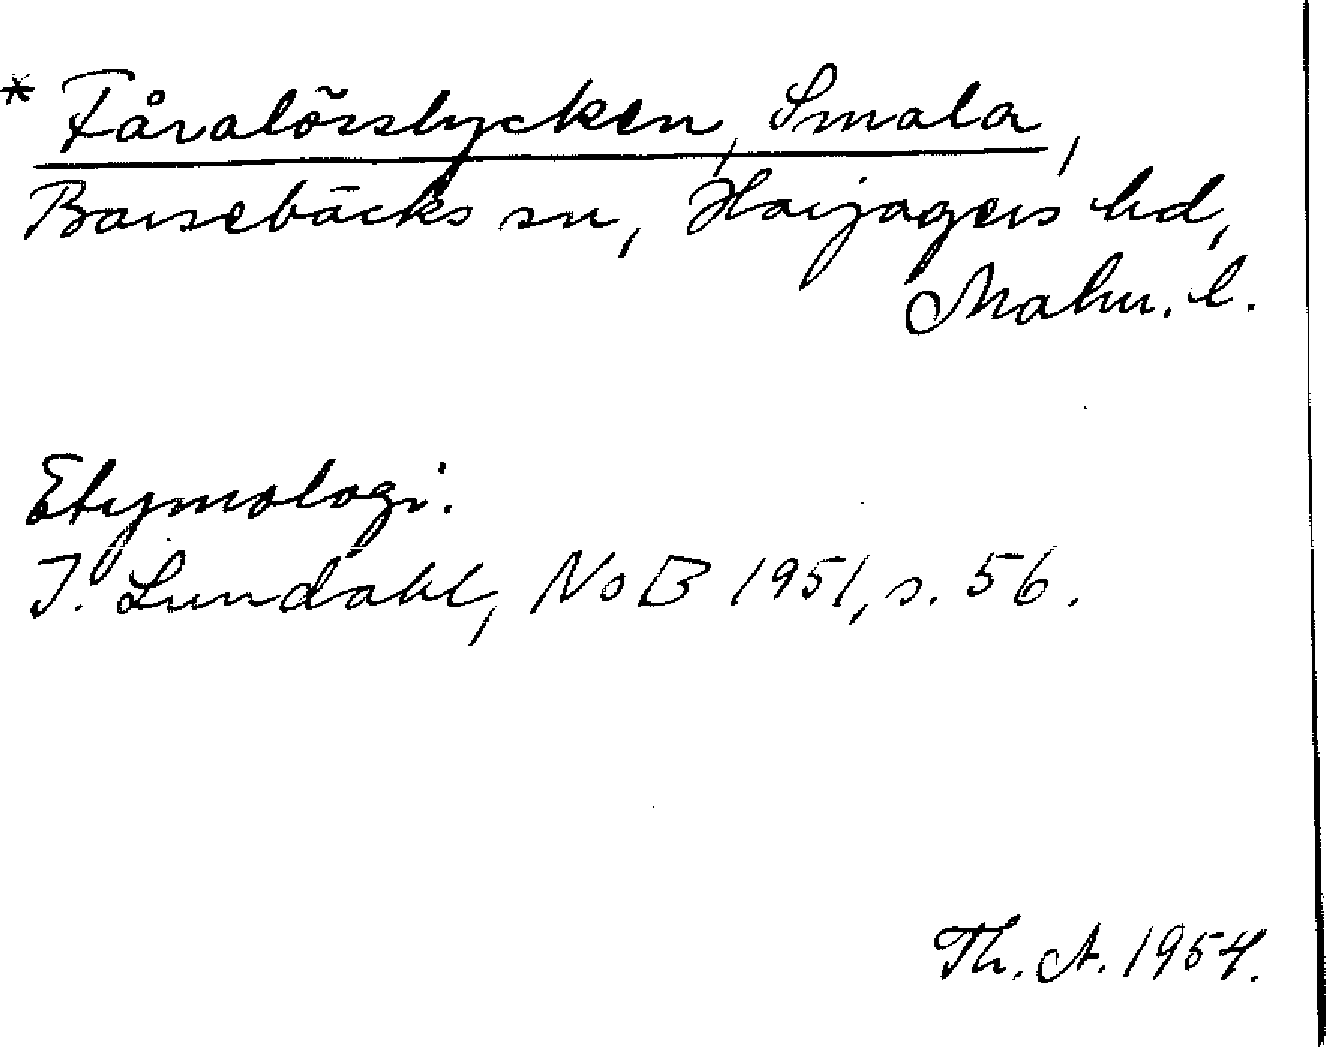 * Fåralösslycken, Smala,
Barsebäcks sn, Harjagers hd,
Malm. l.
Etymologi.
I. Lundahl, NoB 1951, s. 56.
Th. A. 1954.